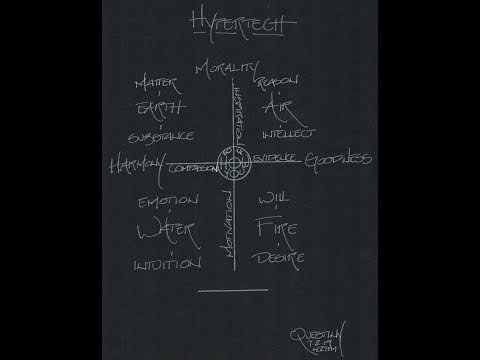 HYPERTECH
MORALITY
MATTER
EARTH
SUBSTANCE
REASON
AIR
INTELLECT
HARMONY
COMPASSION
EVIDENCE
GOODNESS
MOTIVATION
EMOTION
WATER
INTUITION
WILL
FIRE
DESIRE
7.2.19